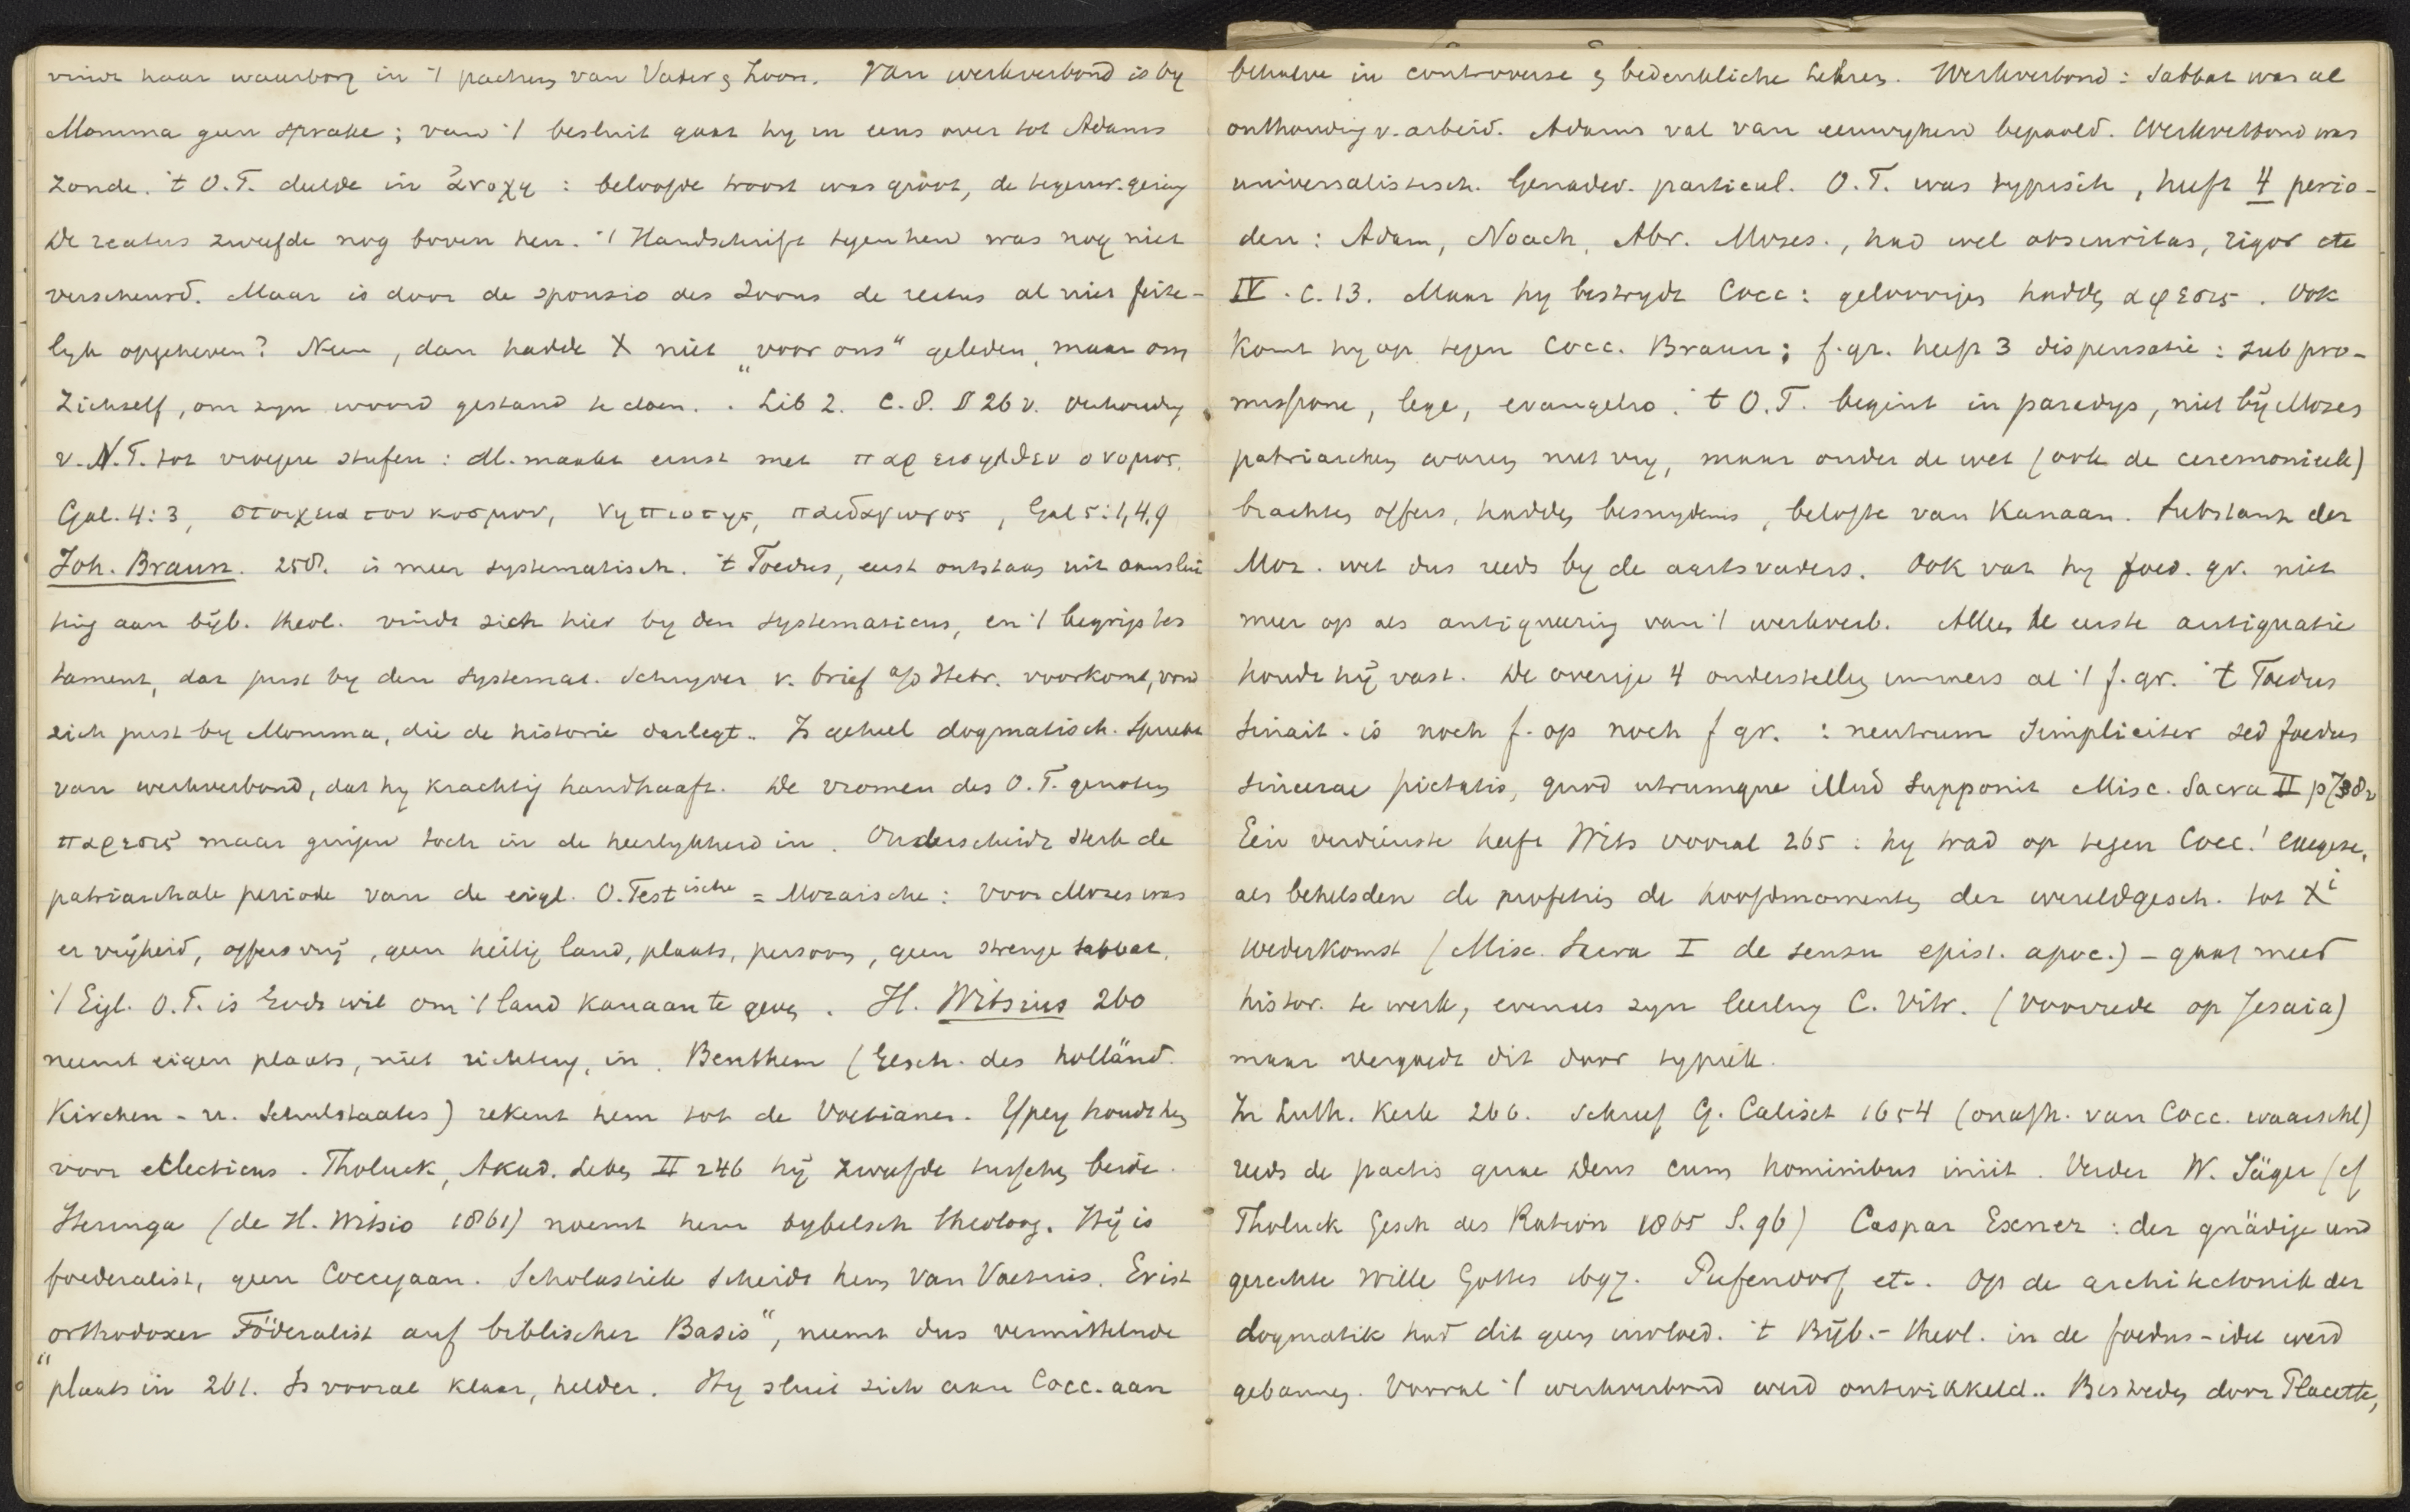 vindt haar waarborg in 't pactum van Vader & Zoon. Van werkverbond is by
Momma geen sprake; van 't besluit gaat hy in eens over tot Adams
zonde. 't O.T. deelde in ἀνοχη: beloofde troost was groot, de tegenw. gering
De reatus zweefde nog boven hen. 't Handschrift tegen hen was nog niet
verscheurd. Maar is door de sponsio des Zoons de reatus al niet feite-
lyk opgeheven? Neen, dan hadde X niet „voor ons" geleden, maar om
Zichself, om zyn woord gestand te doen. Lib 2. C. 8. § 26 v. Verhoudg
v. N.T. tot vroegere stufen: M. maakt ernst met παρεισηλθεν ο νομος.
Gal. 4:3, στοιχεια του κοσμου, νηπιοτης, παιδαγωγος, Gal 5:1,4,9
Joh. Braun. 258. is meer systematisch. 't Foedus, eerst ontstaan uit aanslui
ting aan bijb. theol. vindt zich hier by den systematicus, en 't begrip tes
tament, dat juist by den systemat. Schryver v. brief a/d Hebr. voorkomt, vond
zich juist by Momma, die de historie darlegt. Is geheel dogmatisch. Spreekt
van werkverbond, dat hy krachtig handhaaft. De vromen des O.T. genoten
παρεσις maar gingen toch in de heerlykheid in. Onderscheidt sterk de
patriarchale periode van de eigl. O.Testische = Mozaische: voor Mozes was
er vrijheid, offers vrij, geen heilig land, plaats, persoon, geen strenge sabbat.
't Eigl. O.T. is Gods wil om 't land Kanaan te geven. H. Witsius 260
neemt eigen plaats, niet richting, in. Benthem (Gesch. des holländ.
Kirchen- u. Schulstaates) rekent hem tot de Voetianen. Ypey houdt hem
voor eklecticus. Tholuck, Akad. Leben II 246 hij zweefde tusschen beide.
Heringa (de H. Witsio 1861) noemt hem bybelsch theoloog. Hij is
foederalist, geen Coccejaan. Scholastiek scheidt hem van Voetius. Er ist
„orthodoxer Föderalist auf biblischer Basis", neemt dus vermittelnde
plaats in 261. Is vooral klaar, helder. Hy sluit zich aan Cocc. aan
behalve in controverse & bedenkliche Lehren. Werkverbond: Sabbat was al
onthouding v. arbeid. Adams val van eeuwigheid bepaald. Werkverbond was
universalistisch. Genadev. particul. O.T. was typisch, heeft 4 perio-
den: Adam, Noach, Abr. Mozes., had wel obscuritas, rigor etc
IV. C. 13. Maar hy bestrydt Cocc: geloovigen hadden αφεσις. Ook
komt hy op tegen Cocc. Braun; f. gr. heeft 3 dispensatie: sub pro-
missione, lege, evangelio. 't O.T. begint in paradys, niet bij Mozes
patriarchen waren niet vry, maar onder de wet (ook de ceremonieele)
brachten offers, hadden besnydenis, belofte van Kanaan. Substanz der
Moz. wet dus reeds by de aartsvaders. Ook vat hy foed. gr. niet
meer op als antiqueering van 't werkverb. Alleen de eerste antiquatie
houdt hij vast. De overige 4 onderstellen immers al 't f. gr. 't Foedus
Sinait. is noch f. op noch f gr.: neutrum simpliciter sed foedus
sincerae pietatis, quod utrumque illud supponit Misc. Sacra II p
Een verdienste heeft Wits vooral 265: hy trad op tegen Cocc.' exegese,
als behelsden de profetis de hoofdmomenten der wereldgesch. tot Xi
wederkomst (Misc. Sacra I de sensu epist. apoc.) - gaat meer
histor. te werk, evenals zyn leerling C. Vitr. (Voorrede op Jesaia)
maar vergoedt dit door typiek.
In Luth. Kerk 266. schreef G. Calixt 1654 (onafh. van Cocc. waarschl)
reeds de pactis quae Deus cum hominibus iniit. Verder W. Jäger (cf
Tholuck Gesch des Ration 1865 S. 96) Caspar Exner: der gnädige und
gerechte Wille Gottes 1697. Pufendorf etc. Op de architectoniek der
dogmatik had dit geen invloed. 't Bijb.- theol. in de foedus-idee werd
gebannen. Vooral 't werkverbond werd ontwikkeld.. Bestreden door Placette,